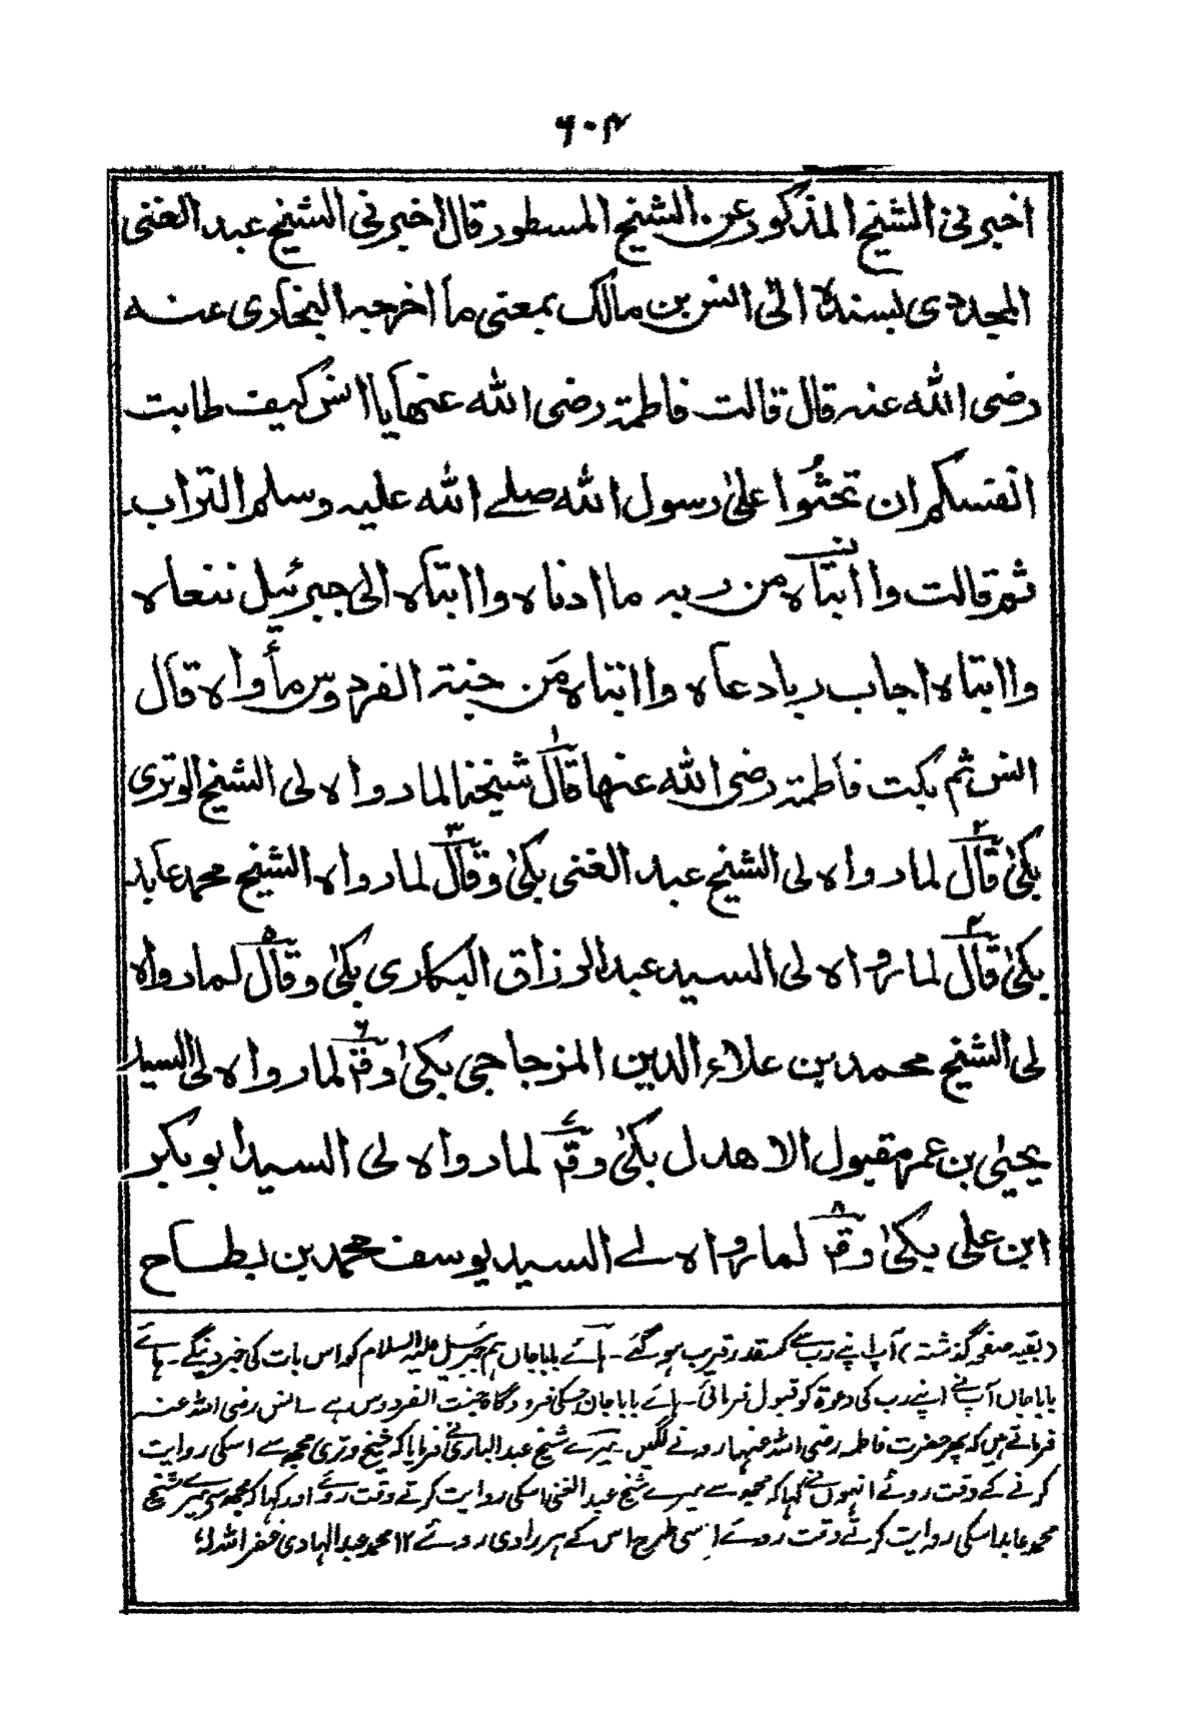 ٦٠٢
اخبرني الشيخ المذكور عن الشيخ المسطور قال اخبرني الشيخ عبد الغنى
المجددى بسنده الى انس بن مالك بمعنى ما اخرجه البخارى عنه
رضى الله عنه قال قالت فاطمة رضى الله عنها يا انس كيف طابت
انفسكم ان تحثوا على رسول الله صلے الله عليه وسلم التراب
ثم قالت وا ابتاه من ربه ما ادناه وا ابتاه الى جبرئيل ننعاه
وا ابتاه اجاب ربا دعاه وا ابتاه مَن جنة الفردوس مأواه قال
انس ثم بكت فاطمة رضى الله عنها قال شيخنا لما رواه لى الشيخ الوترى
بكىٰ قال لما رواه لى الشيخ عبد الغنى بكىٰ وقال لما رواه الشيخ محمد عابد
بكىٰ قال لما رواه لى السيد عبد الرزاق البكارى بكىٰ وقال لما رواه
لى الشيخ محمد بن علاء الدين المزجاجى بكىٰ وقم لما رواه لى السيد
يحيىٰ بن عمر مقبول الاهدل بكىٰ وقم لما رواه لى السيد ابو بكر
ابن على بكىٰ وقم لما رواه لے السيد يوسف محمد بن بطاح
(بقیہ صفحہ گذشتہ) آپ اپنے رب سے کسقدر قریب ہو گئے۔ ہائے باباجاں ہم جبرئیل علیہ السلام کو اس بات کی خبر دینگے۔ ہائے
باباجاں آپ نے اپنے رب کی دعوۃ کو قبول فرمائی۔ ہائے باباجان جسکی فرودگاہ جنت الفردوس ہے۔ انس رضی اللہ عنہ
فرماتے ہیں کہ پھر حضرت فاطمہ رضی اللہ عنہا رونے لگیں۔ میرے شیخ عبد الباری نے فرمایا کہ شیخ وتری مجھ سے اسکی روایت
کرنے کے وقت روئے انہوں نے کہا کہ مجھ سے میرے شیخ عبد الغنی اسکی روایت کرتے وقت روئے اور کہا کہ مجھ سے میرے شیخ
محمد عابد اسکی روایت کرتے وقت روئے اسی طرح اس کے ہر راوی روئے ١٢ محمد عبد الہادی غفر اللہ لہٗ